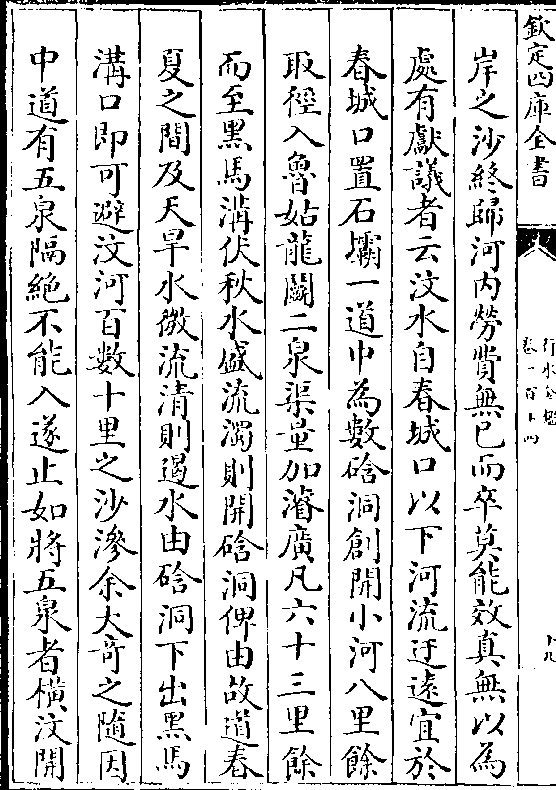 欽定四庫全書
行水金鑑
卷一百十四
十九
岸之沙終歸河内勞費無已而卒莫能效真無以為
處有獻議者云汶水自春城口以下河流迂遠宜於
春城口置石壩一道中為數硆洞創開小河八里餘
取徑入魯姑龍鬭二泉渠量加濬廣凡六十三里餘
而至黑馬溝伏秋水盛流濁則開硆洞俾由故道春
夏之間及天旱水微流清則遏水由硆洞下出黑馬
溝口即可避汶河百數十里之沙滲余大奇之隨因
中道有五泉隔絶不能入遂止如將五泉者横汶開